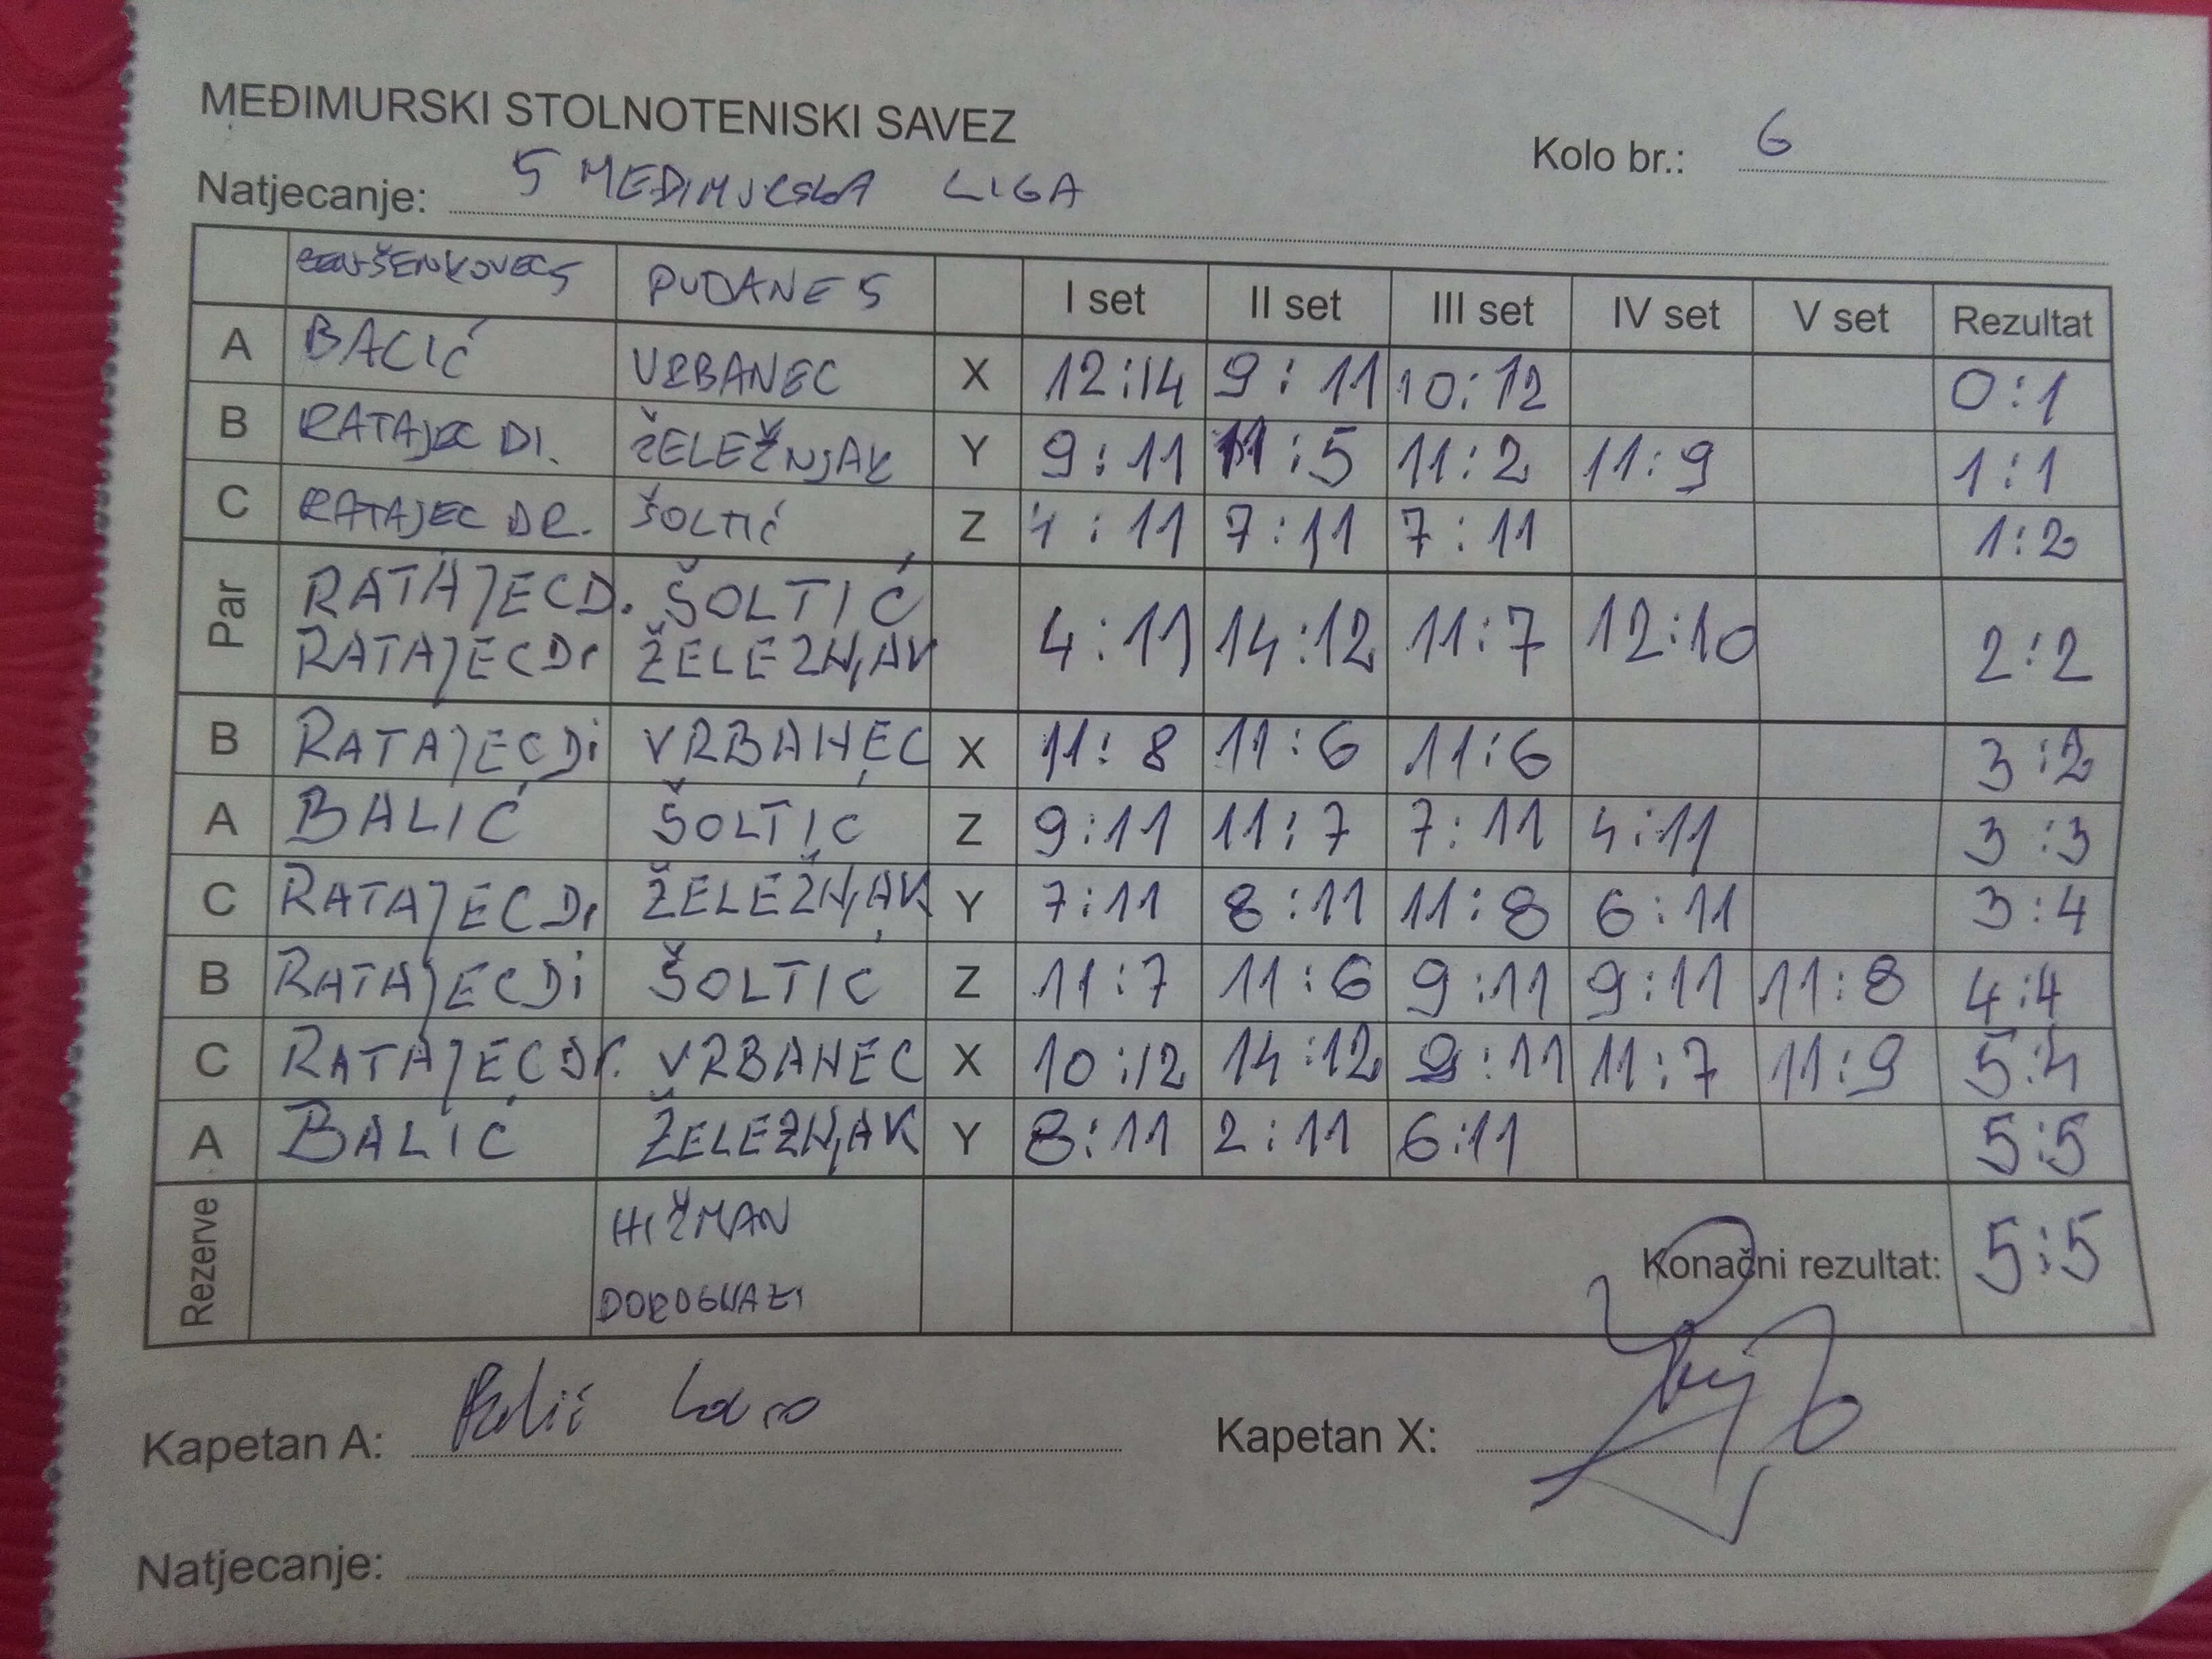 MEĐIMURSKI STOLNOTENISKI SAVEZ
Kolo br.: 6
Natjecanje: 5 MEĐIMURSKA LIGA
ŠENKOVEC 5 PUDANE 5 I set II set III set IV set V set Rezultat
A BALIĆ VRBANEC X 12:14 9:11 10:12 0:1
B RATAJEC DI. ŽELEŽNJAK Y 9:11 11:5 11:2 11:9 1:1
C RATAJEC DR. ŠOLTIĆ Z 4:11 7:11 7:11 1:2
Par RATAJEC D. ŠOLTIĆ 4:11 14:12 11:7 12:10 2:2
RATAJEC Dr ŽELEZNJAK
B RATAJEC Di VRBANEC X 11:8 11:6 11:6 3:2
A BALIĆ ŠOLTIC Z 9:11 11:7 7:11 4:11 3:3
C RATAJEC Dr ŽELEŽNJAK Y 7:11 8:11 11:8 6:11 3:4
B RATAJEC Di ŠOLTIĆ Z 11:7 11:6 9:11 9:11 11:8 4:4
C RATAJEC Dr. VRBANEC X 10:12 14:12 9:11 11:7 11:9 5:4
A BALIĆ ŽELEZNJAK Y 8:11 2:11 6:11 5:5
Rezerve HIŽMAN
DOROGHAZI
Konačni rezultat: 5:5
Kapetan A: Balić
Kapetan X:
Natjecanje: